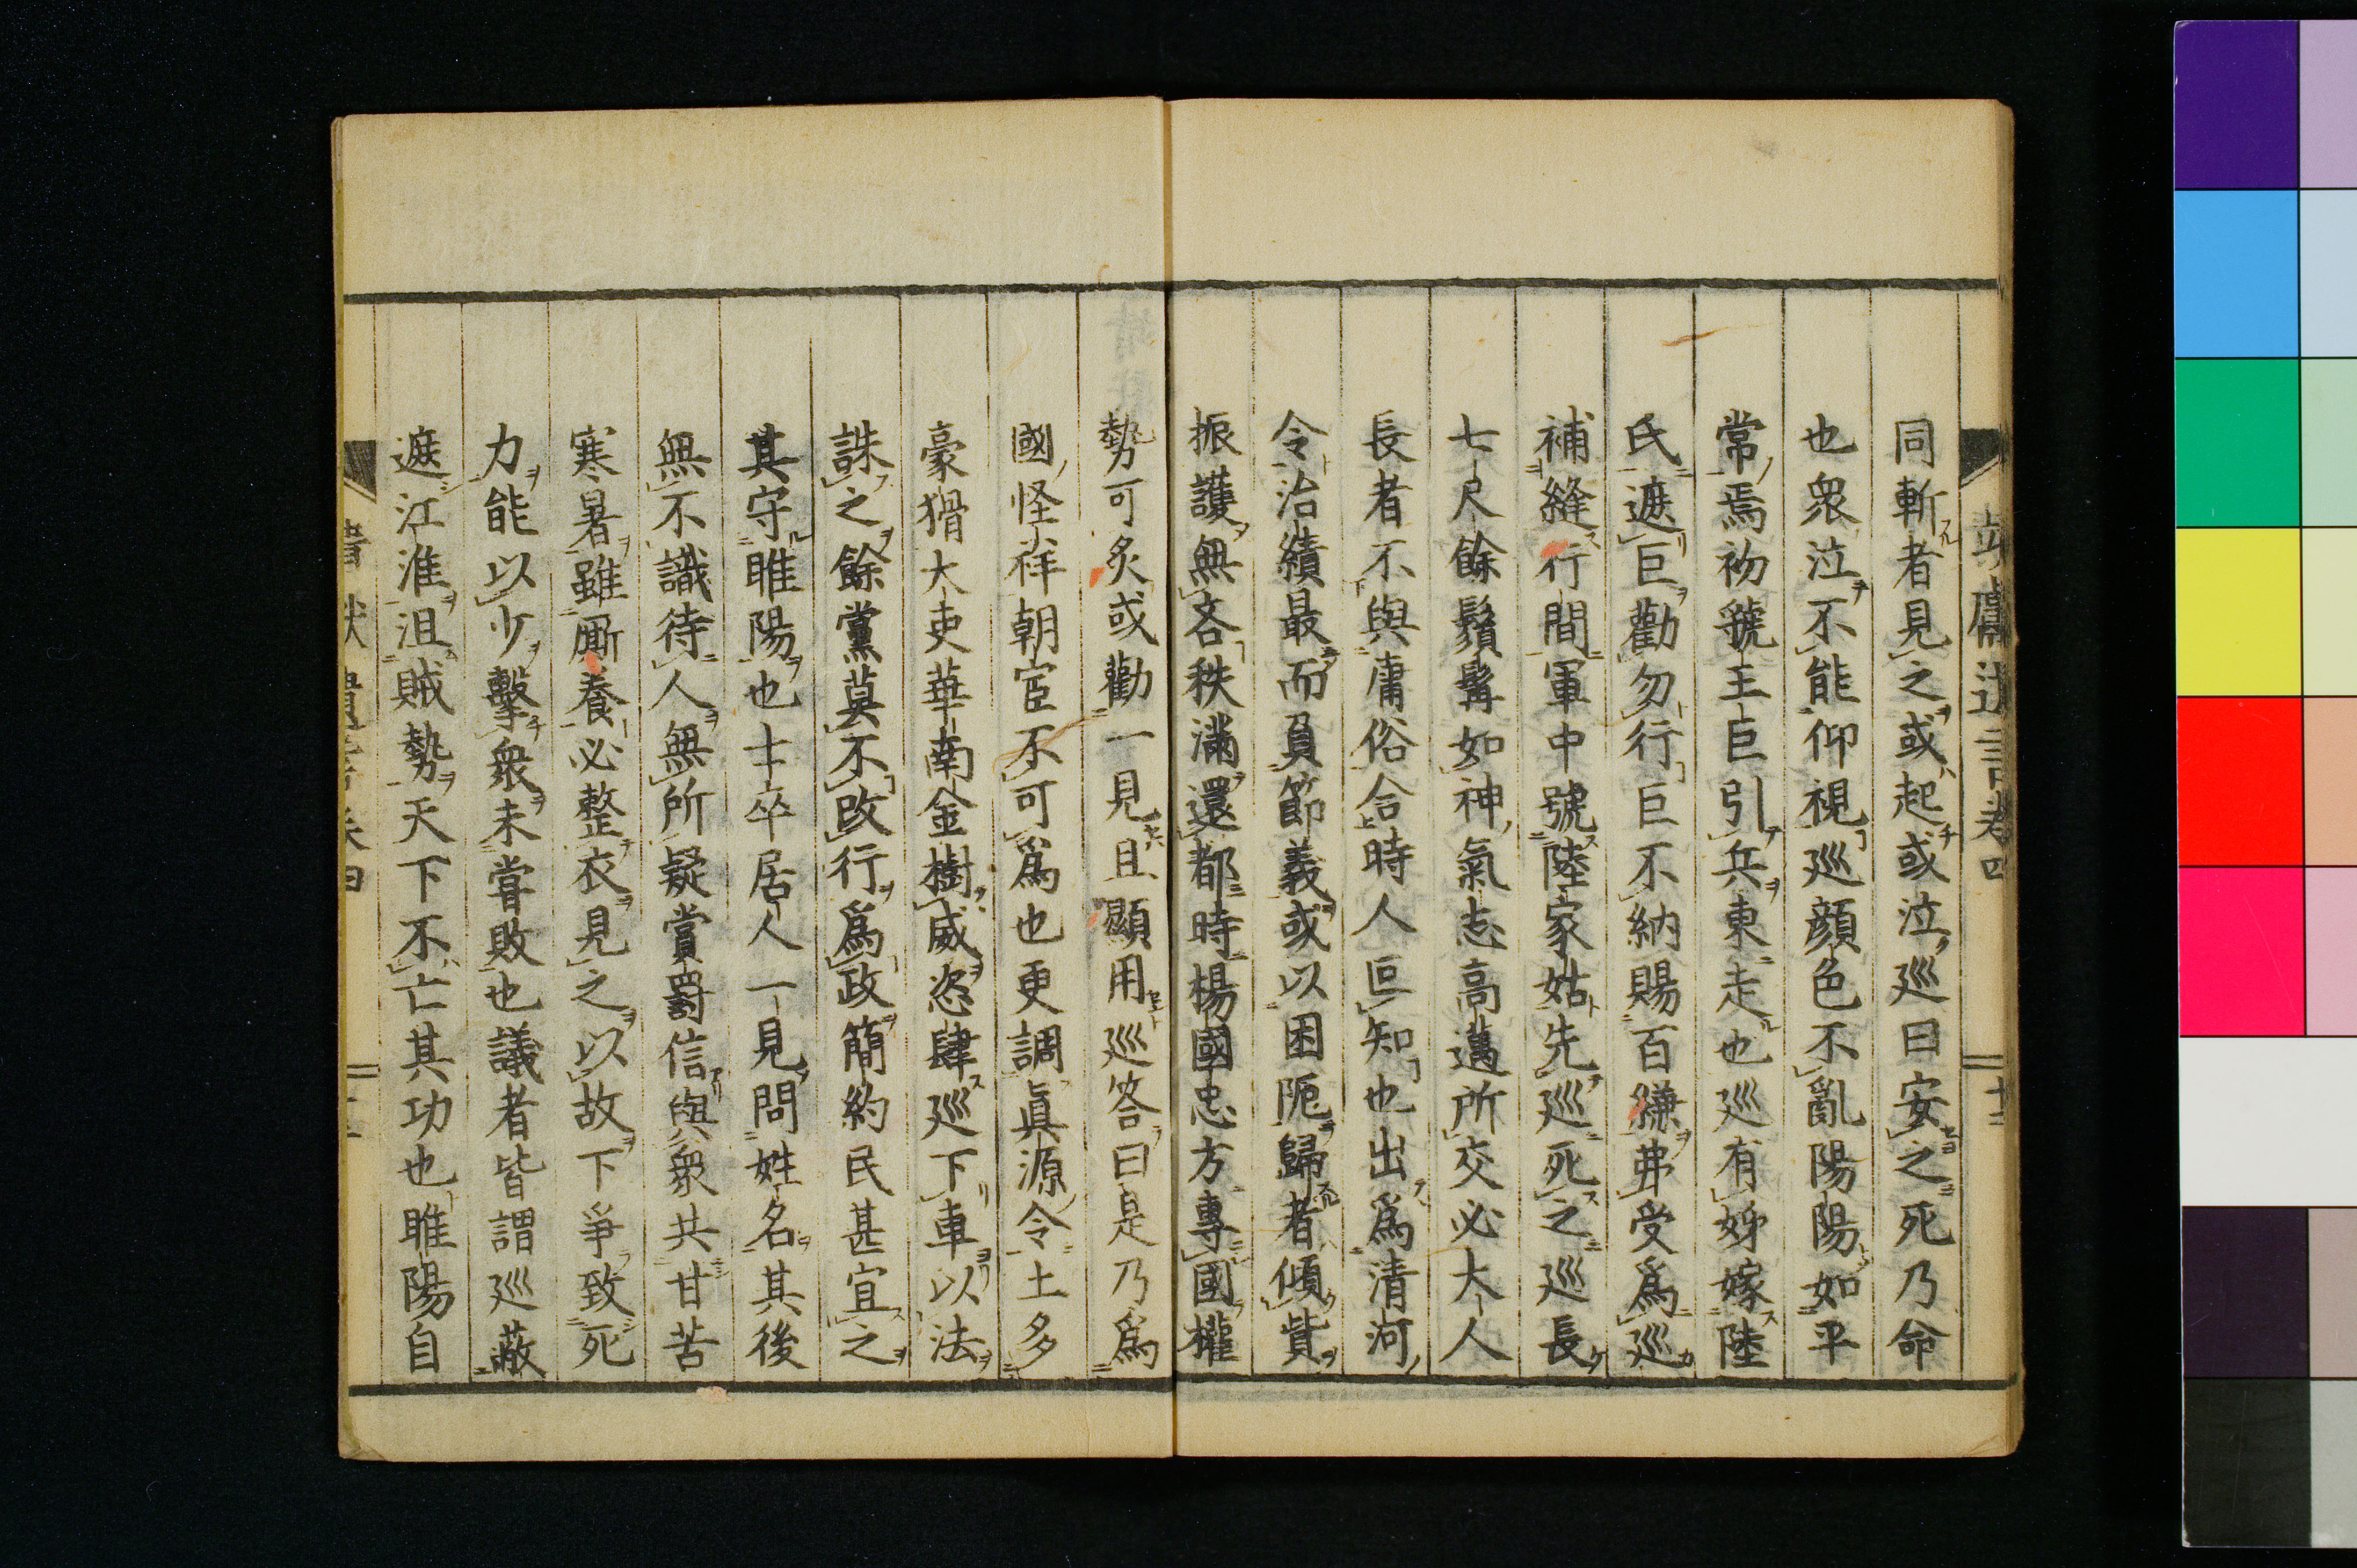 同斬者見之或起或泣巡曰安之死乃命
也衆泣不能仰視巡顔色不亂陽陽如平
常焉初虢王巨引兵東走也巡有姊嫁陸
氏遮巨勸勿行巨不納賜百縑弗受爲巡
補縫行間軍中號陸家姑先巡死之巡長
七尺餘鬚髯如神氣志高邁所交必大人
長者不與庸俗合時人叵知也出爲清河
令治績最而負節義或以困阨歸者傾貲
振護無吝秩滿還都時楊國忠方專國權
勢可炙或勸一見且顯用巡答曰是乃爲
國怪祥朝宦不可爲也更調眞源令土多
豪猾大吏華南金樹威恣肆巡下車以法
誅之餘黨莫不改行爲政簡約民甚宜之
其守睢陽也士卒居人一見問姓名其後
無不識待人無所疑賞罰信與衆共甘苦
寒暑雖厮養必整衣見之以故下爭致死
力能以少擊衆未嘗敗也議者皆謂巡蔽
遮江淮沮賊勢天下不亡其功也睢陽自